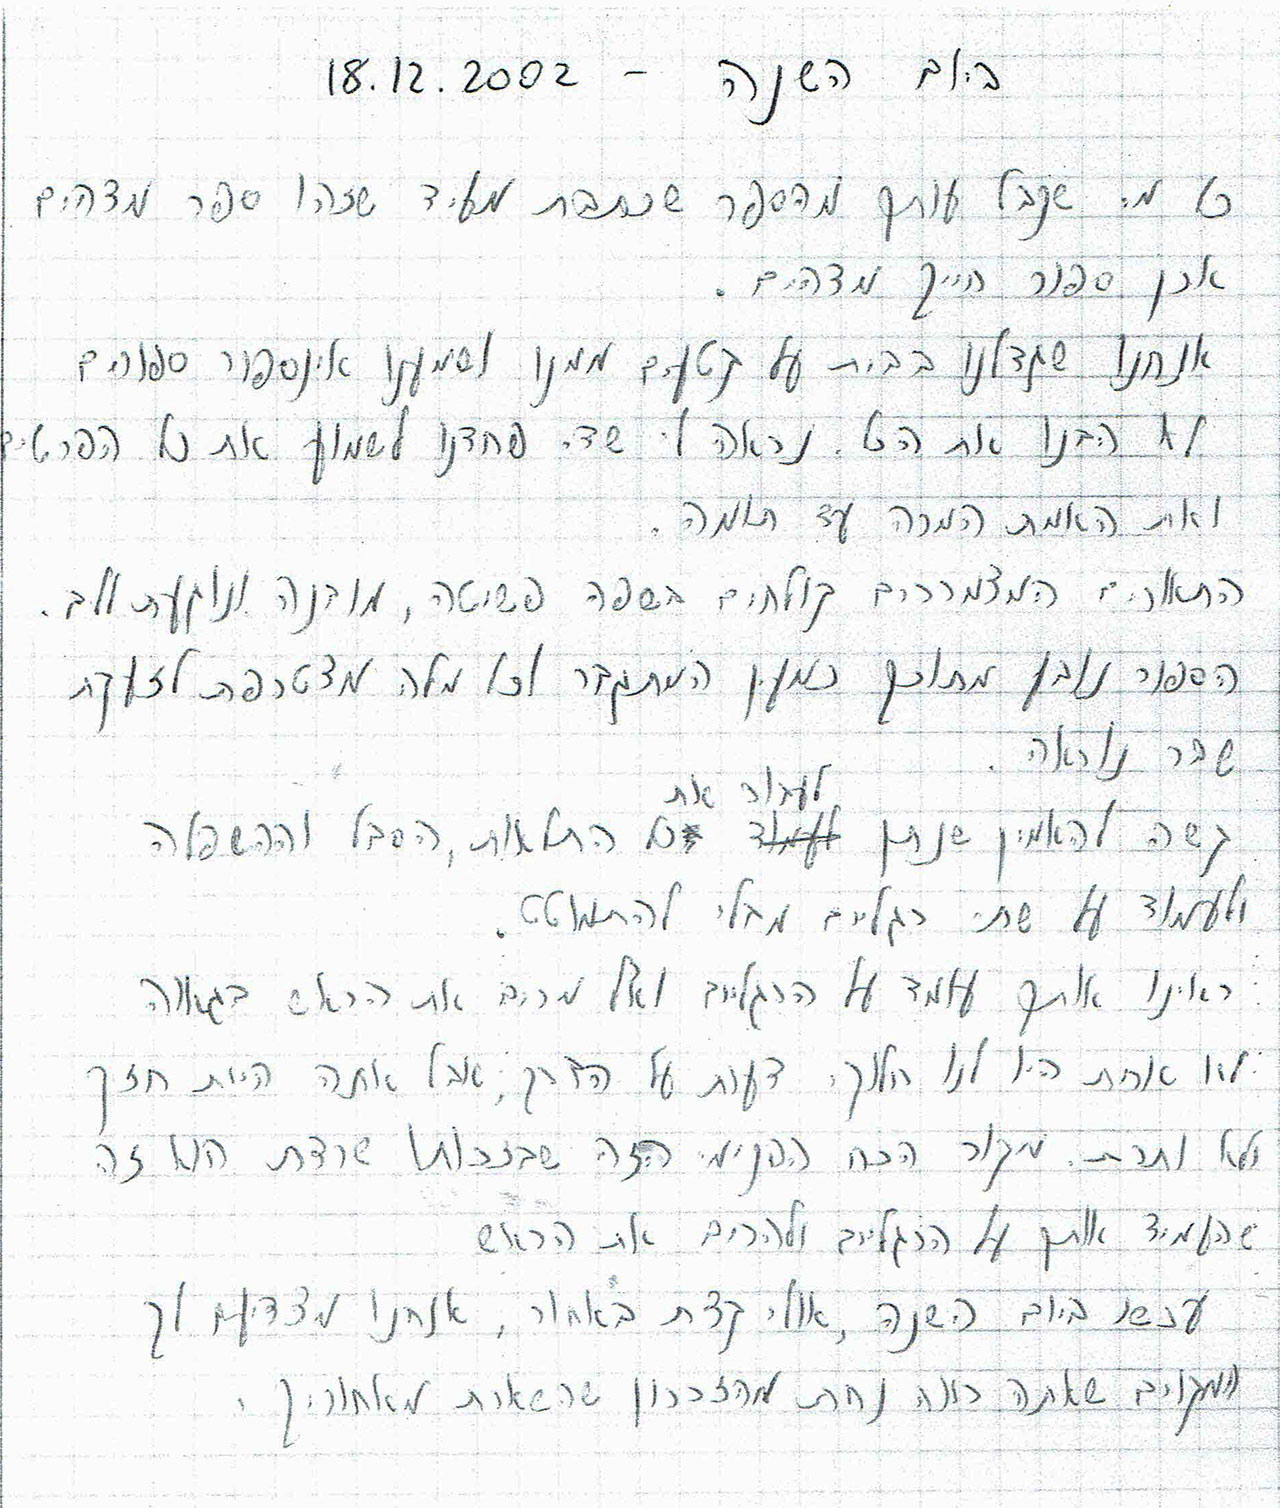 ביום השנה - 18.12.2002
כל מי שקבל עותק מהספר שכתבת מעיד שזהו ספר מדהים
אכן ספור חייך מדהים.
אנחנו שגדלנו בבית על קטעים ממנו ושמענו אינספור ספורים
לא הבנו את הכל. נראה לי שדי פחדנו לשמוע את כל הפרטים
ואת האמת המרה עד תומה.
התאורים המצמררים קולחים בשפה פשיטה, מובנה ונוגעת ללב.
הספור נובע מתוכך כמעין המתגבר וכל מלה מצטרפת לזעקת
שבר נוראה.
לעבור את
קשה להאמין שנתן לעמוד כל התלאות, הסבל וההשפלה
ולעמוד על שתי רגליים מבלי להתמוטט.
ראינו אותך עומד על הרגליים ואף מרים את הראש בגאווה
לא אחת היו לנו חלוקי דעות על הדרך, אבל אתה היית חזק
ולא ותרת. מקור הכח הפנימי הזה שבזכותו שרדת הוא זה
שהעמיד אותך על הרגליים ולהרים את הראש
עכשו ביום השנה, אולי קצת באחור, אנחנו מצדיעים לך
ומקוים שאתה רווה נחת מהזכרון שהשארת מאחוריך.